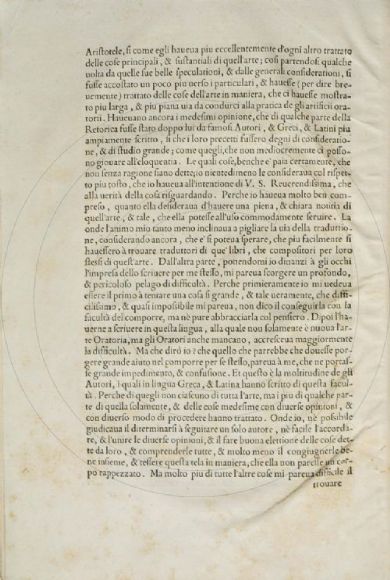 Aristotele, si come egli haueua piu eccellentemente d'ogni altro trattato
delle cose principali, & sustantiali di quell'arte; così partendosi qualche
uolta da quelle sue belle speculationi, & dalle generali considerationi, si
fusse accostato un poco piu uerso i particulari, & hauesse (per dire bre-
uemente) trattato delle cose dell'arte in maniera, che ci hauesse mostra-
to piu larga, & piu piana uia da condurci alla pratica de gli artificii ora-
torii. Haueuano ancora i medesimi opinione, che di qualche parte della
Retorica fusse stato doppo lui da famosi Autori, & Greci, & Latini piu
ampiamente scritto, si che i lor precetti fussero degni di consideratio-
ne, & di studio grande; come quegli, che non mediocremente ci posso-
no giouare all'eloquentia. Le quali cose, benche è paia certamente, che
non senza ragione siano dette; io nientedimeno le consideraua col rispet-
to piu tosto, che io haueua all'intentione di V. S. Reuerendissima, che
alla uerità della cosa risguardando. Perche io haueua molto ben com-
preso, quanto ella desideraua d'hauere una piena, & chiara notitia di
quell'arte, & tale, che ella potesse all'uso commodamente seruire. La
onde l'ammo mio tanto meno inclinaua a pigliare la uia della traduttio-
ne, considerando ancora, che e' si poteua sperare, che piu facilmente si
hauessero à trouare traduttori di que' libri, che compositori per loro
stessi di quest'arte. Dall'altra parte, ponendomi io dinanzi à gli occhi
l'impresa dello scriuere per me stesso, mi pareua scorgere un profondo,
& pericoloso pelago di difficultà. Perche primieramente io mi uedeua
essere il primo à tentare una cosa sì grande, & tale ueramente, che diffi-
cilissimo, & quasi impossibile mi pareua, non dico il conseguirla con la
facultà del comporre, ma nè pure abbracciarla col pensiero. Dipoi l'ha-
uerne a scriuere in questa lingua, alla quale non solamente è nuoua l'ar-
te Oratoria, ma gli Oratori anche mancano, accresceua maggiormente
la difficultà. Ma che dirò io? che quello che parrebbe che douesse por-
gere grande aiuto nel comporre per se stesso, pareua à me, che ne portas-
se grande impedimento, & confusione. Et questo è la moltitudine de gli
Autori, i quali in lingua Greca, & Latina hanno scritto di questa facul-
tà. Perche di quegli non ciascuno di tutta l'arte, ma i piu di qualche par-
te di quella solamente, & delle cose medesime con diuerse opinioni, &
con diuerso modo di procedere hanno trattato. Onde io, nè possibile
giudicaua il determinarsi à seguitare un solo autore, nè facile l'accorda-
re, & l'unire le diuerse opinioni, & il fare buona elettione delle cose det-
te da loro, & comprenderle tutte, & molto meno il congiugnerle be-
ne insieme, & tessere questa tela in maniera, che ella non paresse un cor-
po rappezzato. Ma molto piu di tutte l'altre cose mi pareua difficile il
trouare